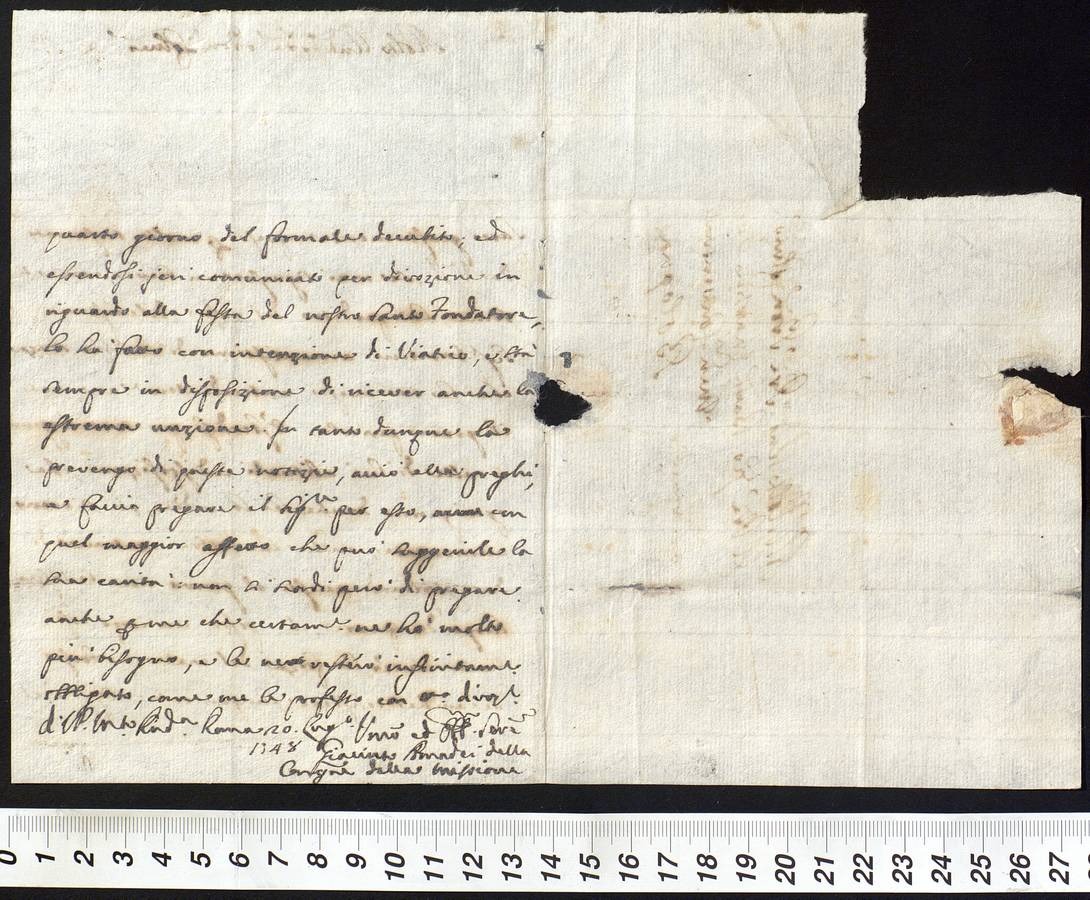 quarto giorno del formale decubito, ed
essendosi jeri comunicato per divozione in
riguardo alla festa del nostro Santo Fondatore,
lo ha fatto con intenzione di Viatico, e stà
sempre in disposizione di ricever anche la
estrema unzione. In tanto dunque la
prevengo di questa notizia, acciò ella preghi,
e faccia pregare il Sig.re per esso, con
quel maggior affetto che può suggerirle la
sua carità: non si scordi però di pregare
anche per me che certam.e ne ho molto
più bisogno, e le ne resterò infinitam.e
obbligato, come me le professo con divoz.e
di V. R. Roma 20. Lug.o Umo ed Serv.e
1748 Giacinto Amadei della
Cong.ne della Missione
0 1 2 3 4 5 6 7 8 9 10 11 12 13 14 15 16 17 18 19 20 21 22 23 24 25 26 27